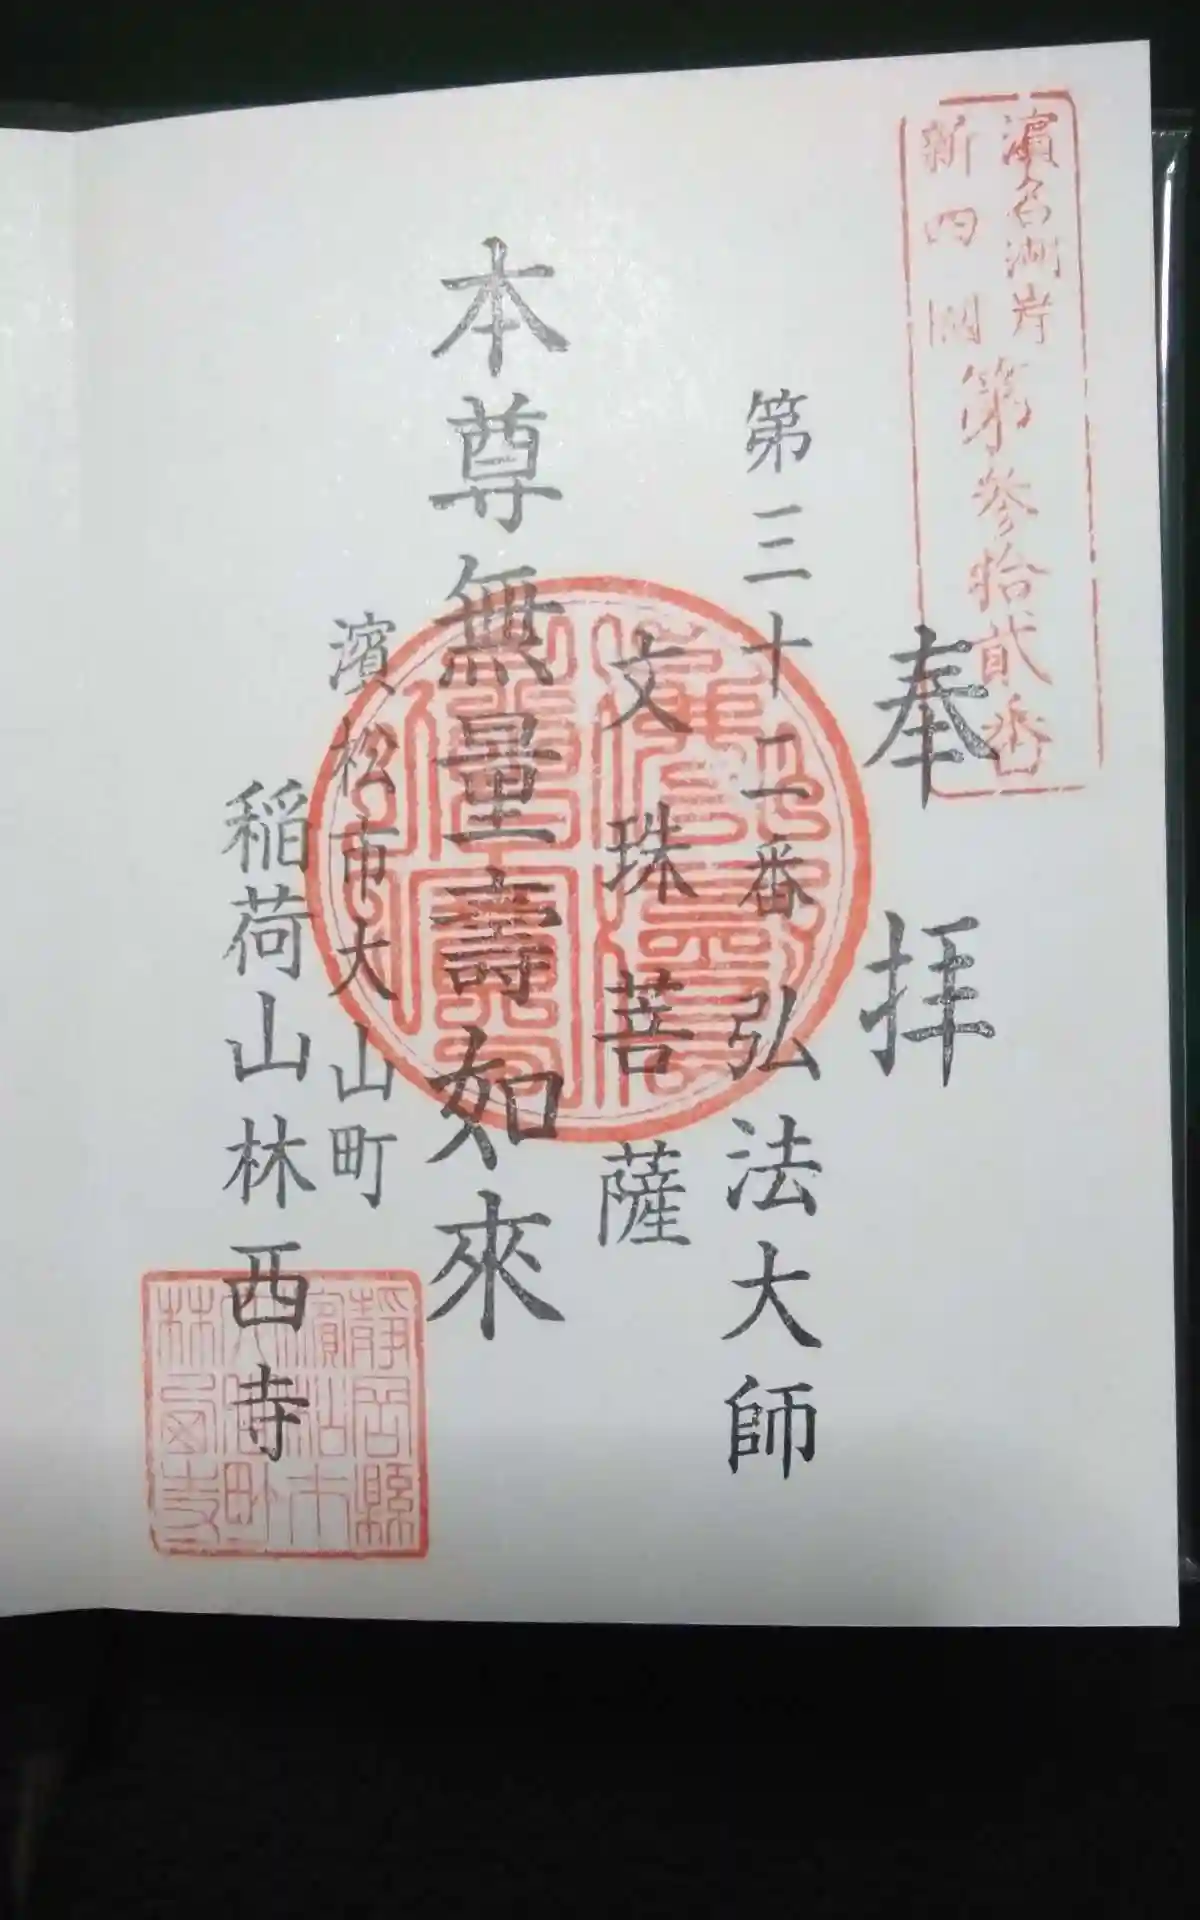 濱名湖岸
新四國
第参拾貳番
奉拝
第三十二番 弘法大師
文珠菩薩
本尊無量壽如來
濱松市大山町
稲荷山林西寺
静岡縣
濱松市
大山町
林西寺